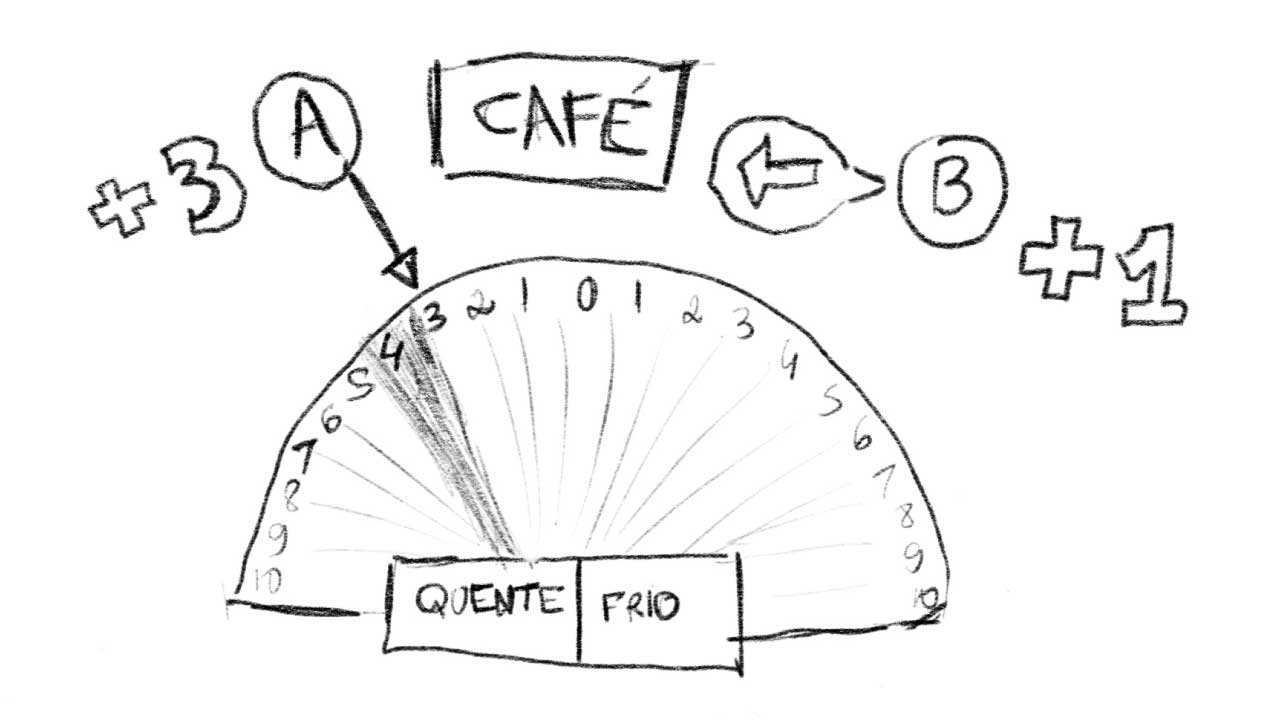 CAFÉ
A
+3
B
+1
10 9 8 7 6 5 4 3 2 1 0 1 2 3 4 5 6 7 8 9 10
QUENTE FRIO